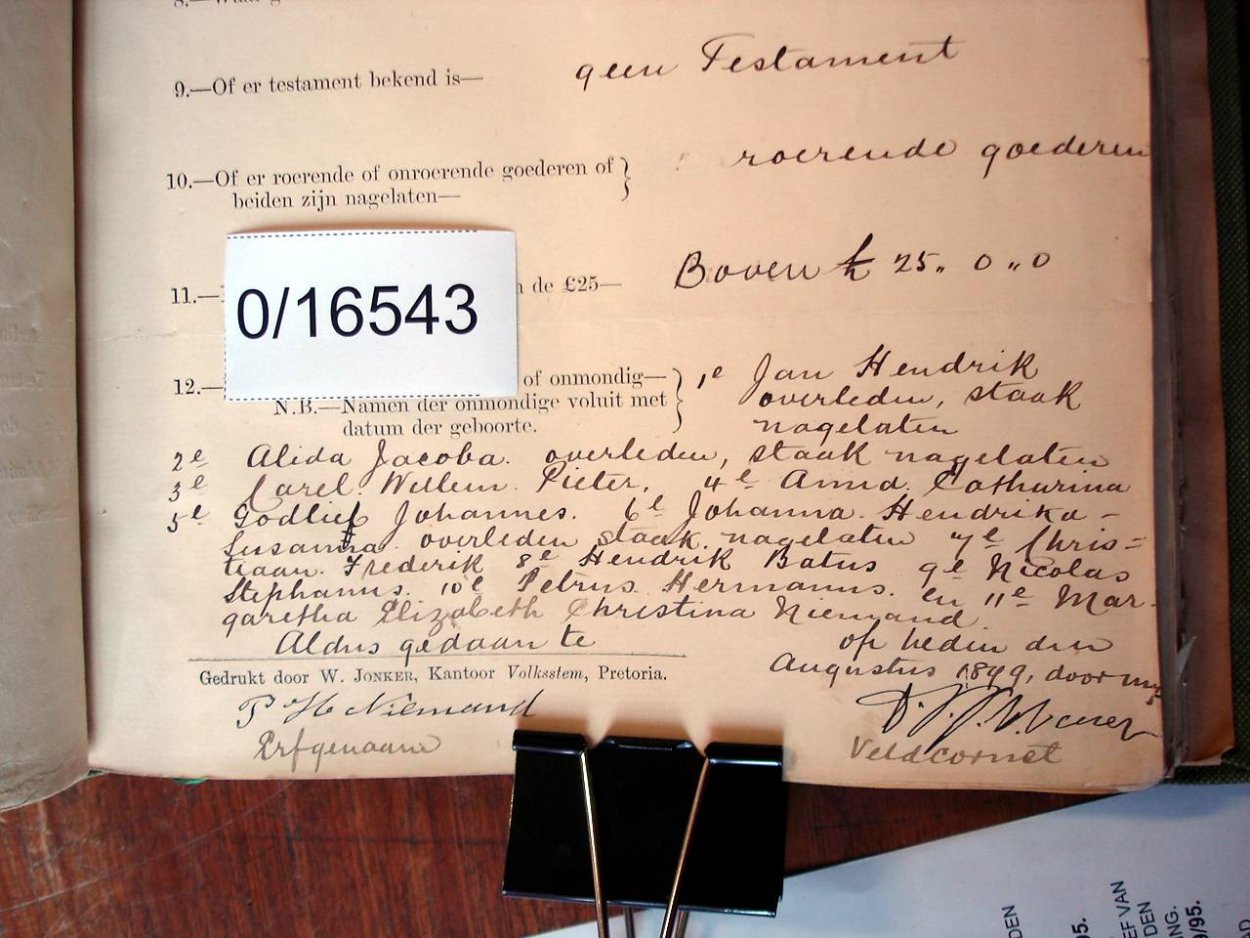 9.—Of er testament bekend is— geen Testament
10.—Of er roerende of onroerende goederen of roerende goederen
beiden zijn nagelaten—
11.— de £25— Boven £ 25 „ 0 „ 0
0/16543
12.— of onmondig— 1e Jan Hendrik
N.B.—Namen der onmondige voluit met overleden, staak
datum der geboorte. nagelaten
2e Alida Jacoba. overleden, staak nagelaten
3e Carel. Willem. Pieter, 4e Anna. Catharina
5e Godlief Johannes. 6e Johanna. Hendrika-
Susanna. overleden staak nagelaten 7e Chris=
tiaan. Frederik 8e Hendrik Batus 9e Nicolas
Stephanus. 10e Petrus Hermanus. en 11e Mar-
garetha Elizabeth Christina Niemand.
Aldus gedaan te op heden den
Gedrukt door W. Jonker, Kantoor Volksstem, Pretoria. Augustus 1899, door mij
P H Niemand
Erfgenaam Veldcornet
DEN
5.
EF VAN
DEN
NG.
/95.